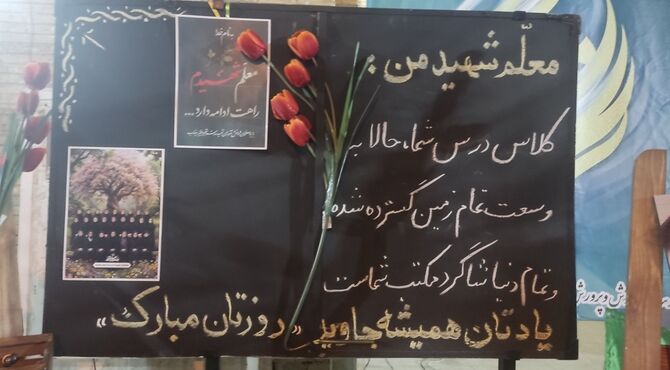 معلّم شهید من :
کلاس درس شما، حالا به
وسعت تمام زمین گسترده شده
و تمام دنیا شاگرد مکتب شماست
یادتان همیشه جاوید «روزتان مبارک»
به نام خدا
معلم شهیدم
راهت ادامه دارد...
ش و پرورش